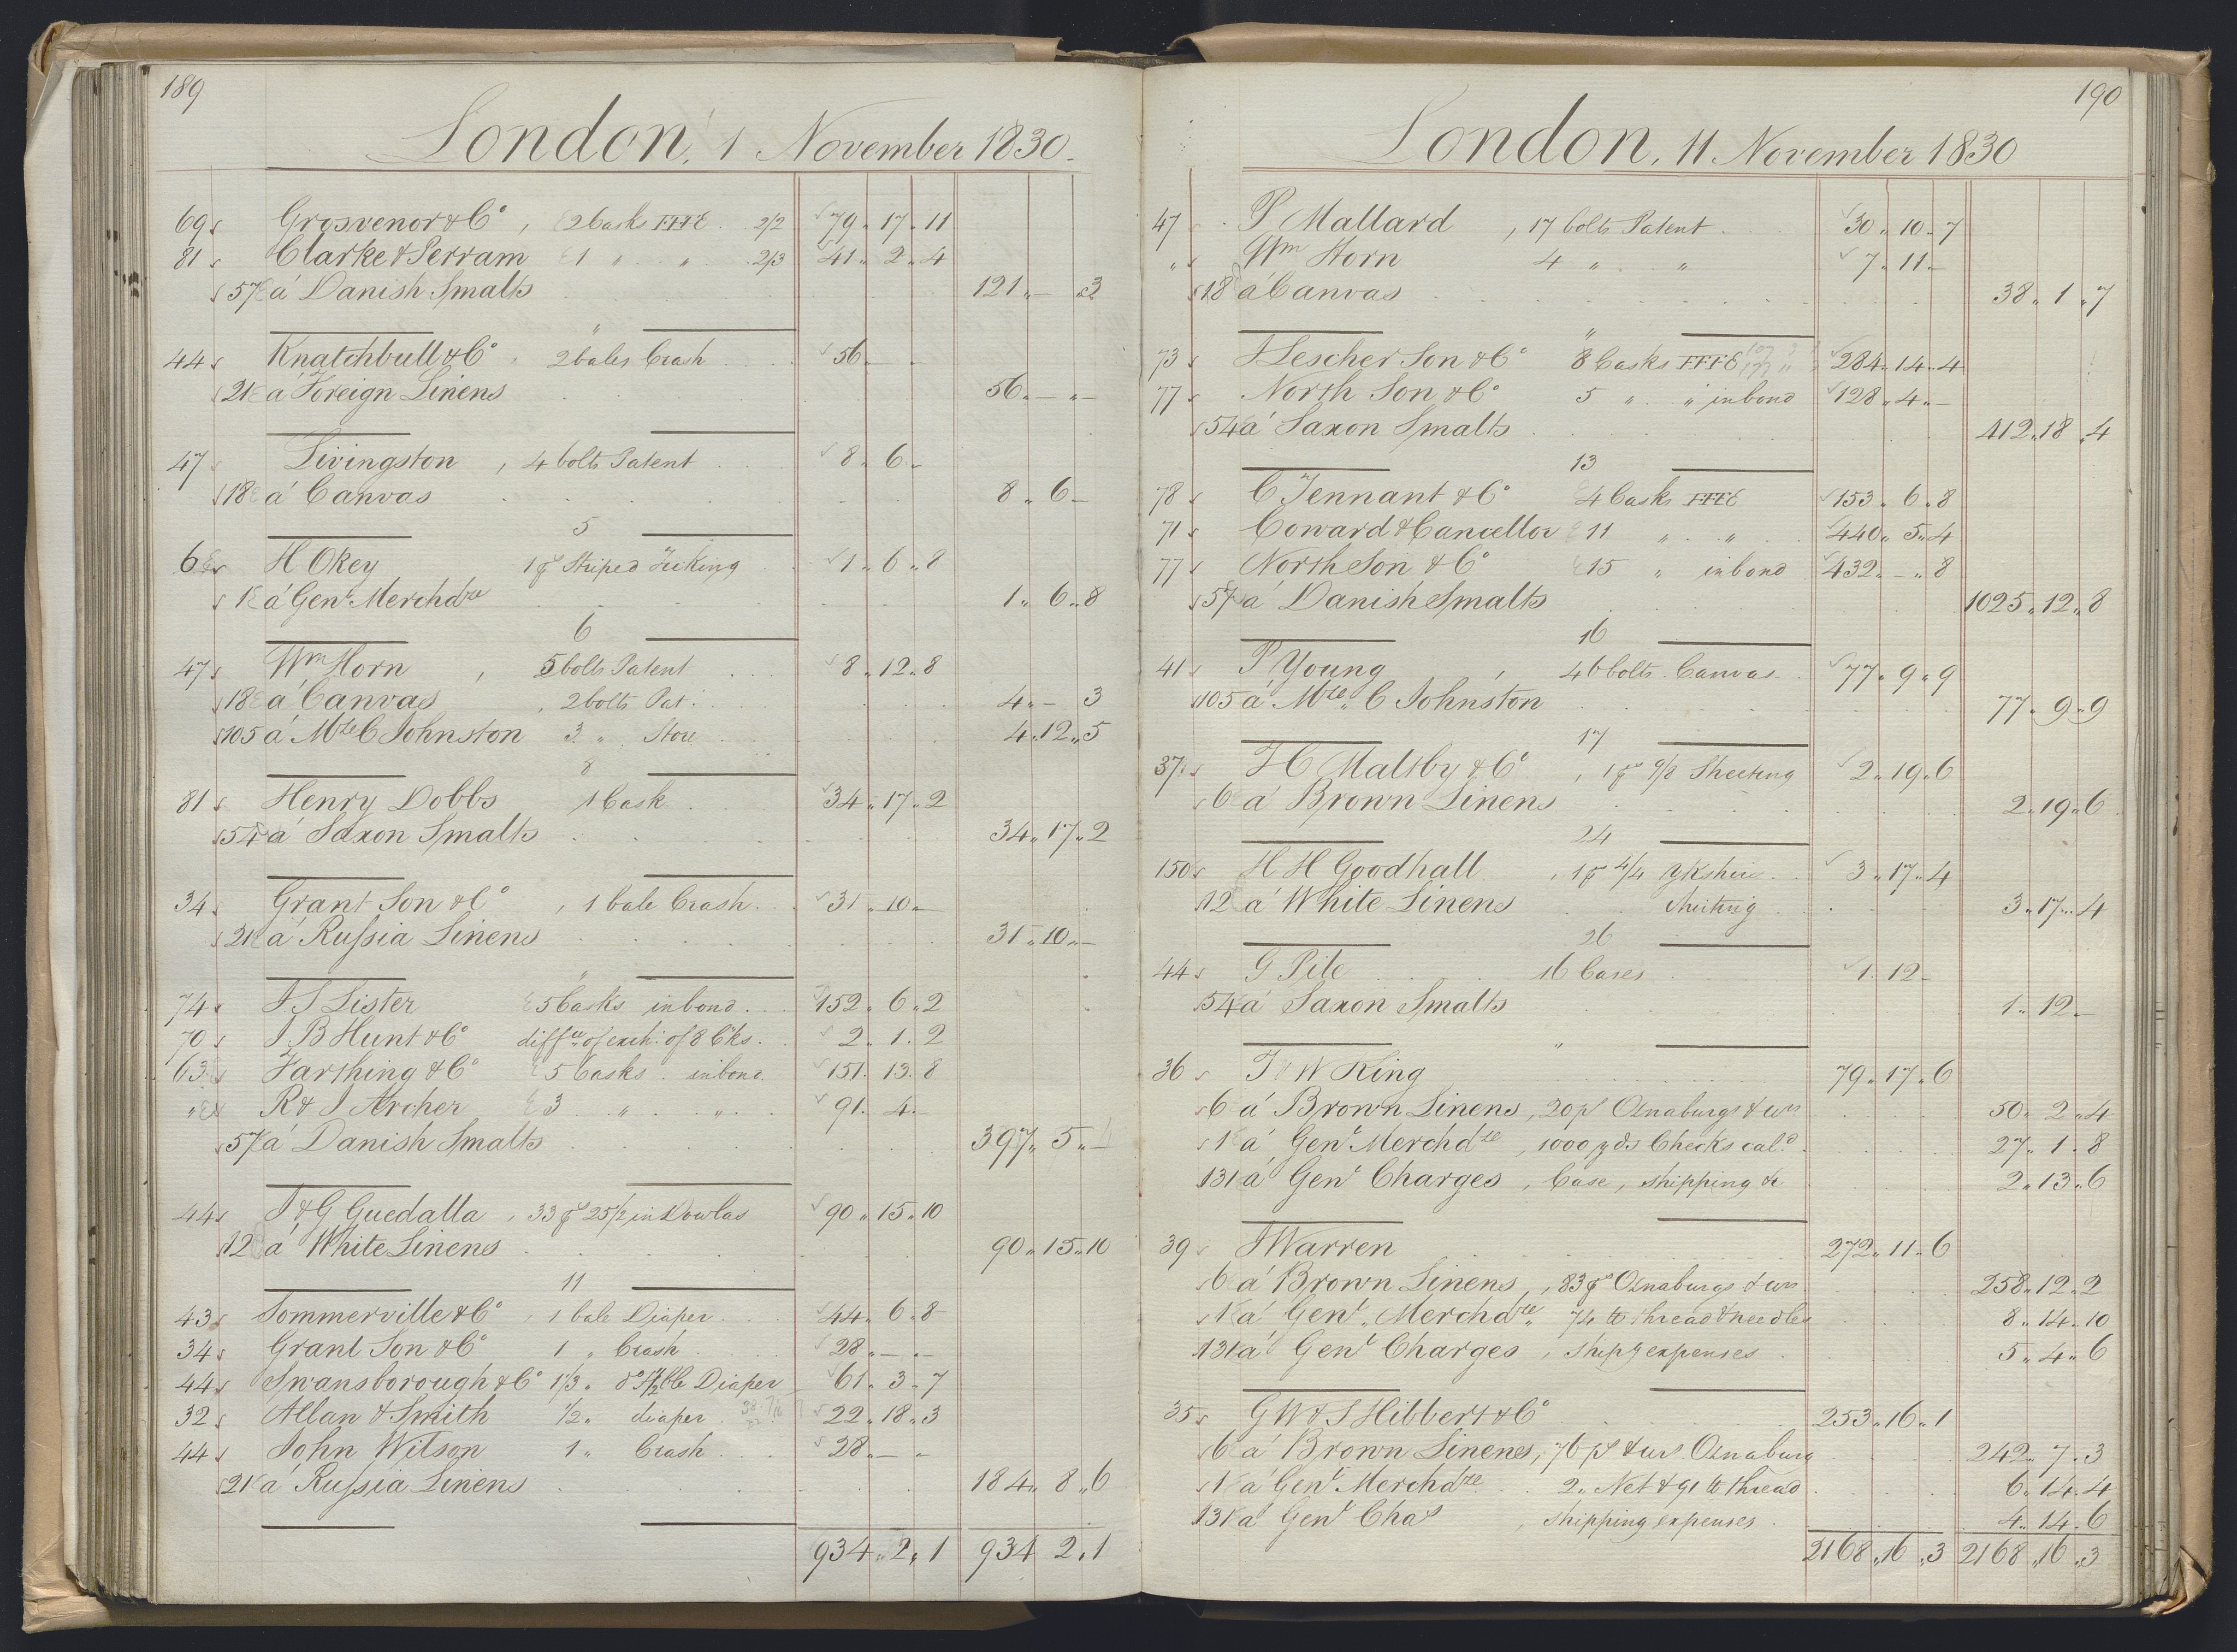 189
London, 1 November 1830.
69 Grosvenor & Co, 2 Casks FFFE 2/2 79 " 17 " 11
81 Clarke & Perram 1 " " 2/3 41 " 2 " 4
57 á Danish Smalts 121 " — " 3
"
44 Knatchbull & Co 2 bales Crash 56 - -
21 á Foreign Linens 56 " — " —
47 Livingston, 4 bolts Patent 8 " 6 -
18 á Canvas 8 " 6 —
5
6 H Okey 1 ps Striped Ticking 1 " 6 " 8
1 á Genl Merchdze 1 " 6 " 8
6
47 Wm Horn, 5 bolts Patent 8 " 12 " 8
18 á Canvas, 2 bolts Pat. 4 " - 3
105 á Mrs C Johnston 3 " Store 4 " 12 " 5
8
81 Henry Dobbs 1 Cask 34 " 17 " 2
54 á Saxon Smalts 34 " 17 " 2
34 Grant Son & Co, 1 bale Crash 31 " 10 " —
21 á Russia Linens 31 " 10 " —
"
74 J S Lister 5 Casks inbond 152 " 6 " 2
70 J B Hunt & Co diffce of exch: of 8 Cks. 2 " 1 " 2
63 Farthing & Co 5 Casks inbond 151 " 13 " 8
" R & J Archer 3 " " 91 " 4 -
57 á Danish Smalts 397 " 5 " —
44 J & G Guedalla, 33 ps 25 1/2 in Dowlas 90 " 15 " 10
12 á White Linens 90 " 15 " 10
11
43 Sommerville & Co, 1 bale Diaper 44 " 6 " 8
34 Grant Son & Co 1 " Crash 28 " — " —
44 Swansborough & Co 1 1/3 " Diaper 61 " 3 " 7
32 Allan & Smith 1/2 " diaper 22 " 18 " 3
44 John Wilson 1 " Crash 28 " — "
21 á Russia Linens 184 " 8 " 6
934 " 2 " 1 934 2 " 1
190
London, 11 November 1830
47 P Mallard, 17 bolts Patent 30 " 10 " 7
" Wm Horn 4 " " 7 " 11 —
18 á Canvas 38 " 1 " 7
"
73 J Lescher Son & Co 8 Casks FFFE 284 " 14 " 4
77 North Son & Co 5 " " inbond 128 " 4 " —
54 á Saxon Smalts 412 " 18 " 4
13
78 C Tennant & Co 4 Casks FFFE 153 " 6 " 8
71 Coward & Cancellor 11 " " 440 " 5 " 4
77 North Son & Co 15 " inbond 432 " — " 8
57 á Danish Smalts 1025 " 12 " 8
16
41 P Young, 46 bolts Canvas 77 " 9 " 9
105 á Mrs C Johnston 77 " 9 " 9
17
37 J C Maltby & Co, 1 ps 9/8 Sheeting 2 " 19 " 6
6 á Brown Linens 2 " 19 " 6
24
150 H H Goodhall, 1 ps 4/4 Ykshire 3 " 17 " 4
12 á White Linens Sheeting 3 " 17 " 4
26
44 G Pile 16 Cases 1 " 12 -
54 á Saxon Smalts 1 " 12 -
"
36 J & W King 79 " 17 " 6
6 á Brown Linens, 20 ps Osnaburgs & wrs 50 " 2 " 4
1 á Genl Merchdze, 1000 yds Checks cald 27 " 1 " 8
131 á Genl Charges, Case, shipping & 2 " 13 " 6
39 J Warren 272 " 11 " 6
6 á Brown Linens, 83 ps Osnaburgs & wrs 258 " 12 " 2
1 á Genl Merchdze, 74 lb thread & needles 8 " 14 " 10
131 á Genl Charges, Shipg expenses 5 " 4 " 6
35 G W & S Hibbert & Co 253 " 16 " 1
6 á Brown Linens, 76 ps & wrs Osnaburg 242 " 7 " 3
1 á Genl Merchdze 2 " Net & 91 lb thread 6 " 14 " 4
131 á Genl Chas, Shipping expenses 4 " 14 " 6
2168 " 16 " 3 2168 " 16 " 3